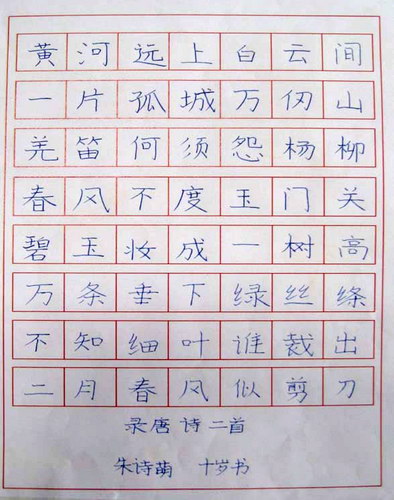 黄河远上白云间
一片孤城万仞山
羌笛何须怨杨柳
春风不度玉门关
碧玉妆成一树高
万条垂下绿丝绦
不知细叶谁裁出
二月春风似剪刀
录唐诗二首
朱诗萌 十岁书